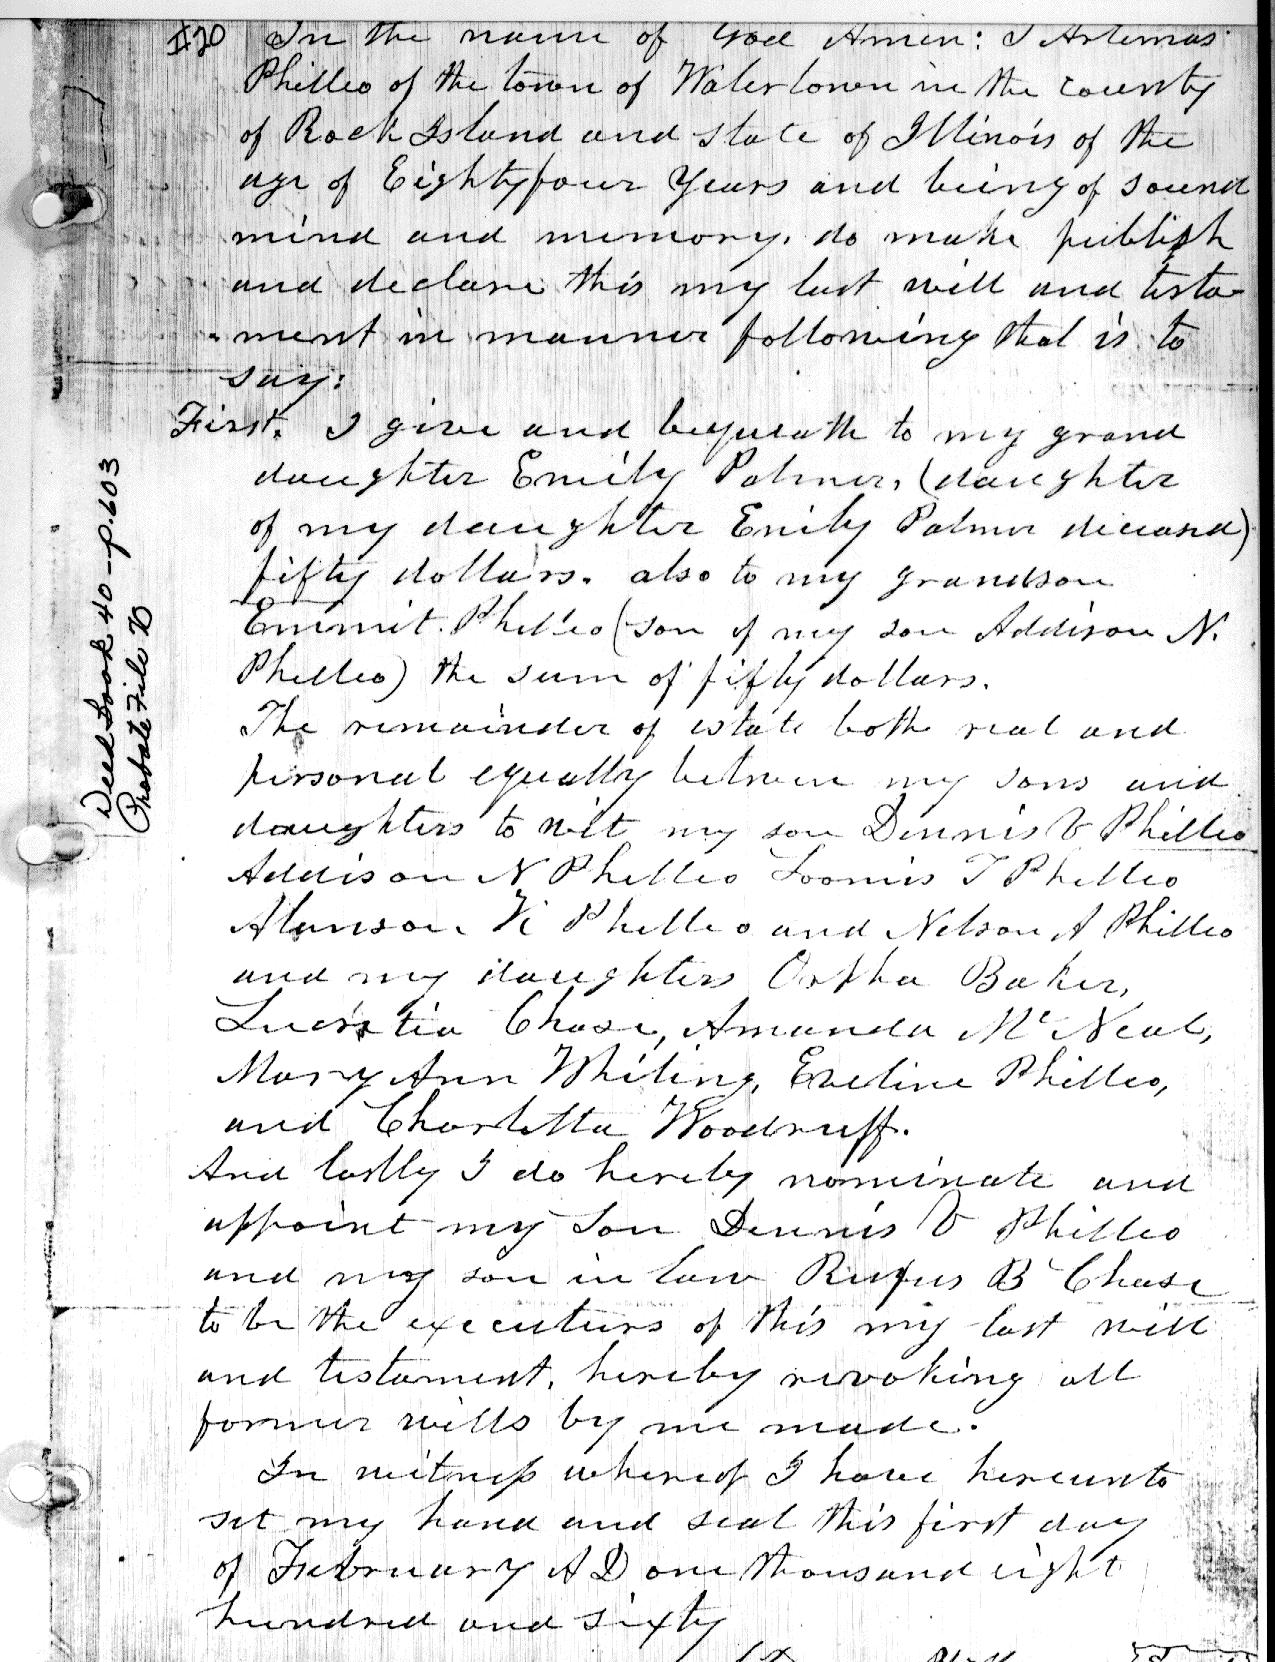 #20 In the name of God Amen: I Artemas
Philleo of the town of Watertown in the county
of Rock Island and state of Illinois of the
age of Eightyfour Years and being of sound
mind and memory, do make publish
and declare this my last will and testa-
ment in manner following that is to
say:
First. I give and bequeath to my grand
daughter Emily Palmer, (daughter
of my daughter Emily Palmer deceased)
fifty dollars. also to my grandson
Emmit. Philleo (son of my son Addison N.
Philleo) the sum of fifty dollars.
The remainder of estate both real and
personal equally between my sons and
daughters to wit my son Dennis V Philleo
Addison N Philleo Loomis T Philleo
Alanson K Philleo and Nelson A Philleo
and my daughters Orpha Baker,
Lucretia Chase, Amanda Mc Neal,
Mary Ann Whiting, Eveline Philleo,
and Charlotta Woodruff.
And lastly I do hereby nominate and
appoint my Son Dennis V Philleo
and my son in law Rufus B Chase
to be the executors of this my last will
and testament, hereby revoking all
former wills by me made.
In witness whereof I have hereunto
set my hand and seal this first day
of February A D one thousand eight
hundred and sixty
Deed Book 40 - p. 603
Probate File 70